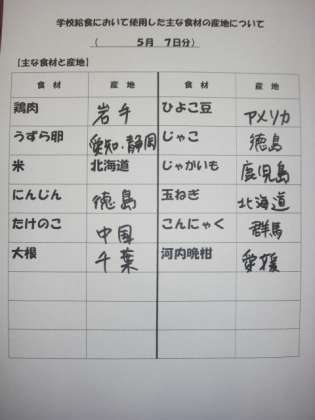 学校給食において使用した主な食材の産地について
（ 5月 7日分）
【主な食材と産地】
食材 産地 食材 産地
鶏肉 岩手 ひよこ豆 アメリカ
うずら卵 愛知・静岡 じゃこ 徳島
米 北海道 じゃがいも 鹿児島
にんじん 徳島 玉ねぎ 北海道
たけのこ 中国 こんにゃく 群馬
大根 千葉 河内晩柑 愛媛